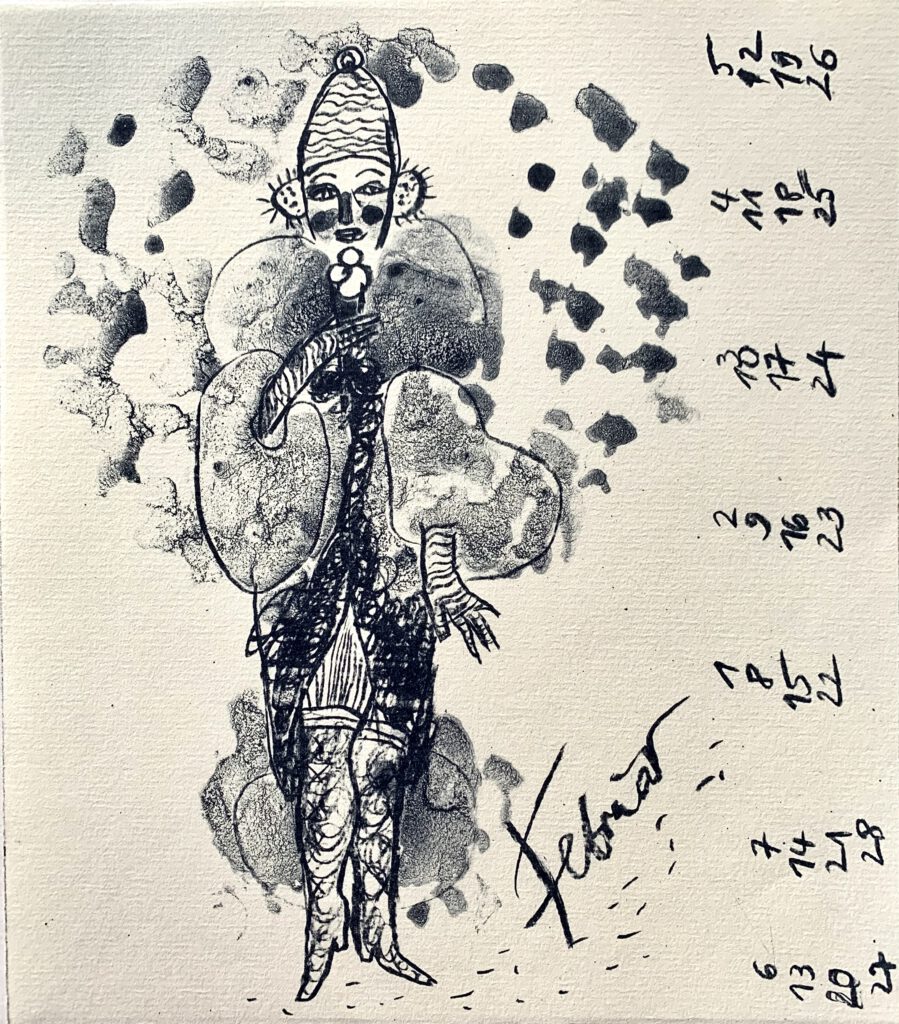 Februar
1 2 4 5
6 7 8 9 10 11 12
13 14 15 16 17 18 19
20 21 22 23 24 25 26
27 28